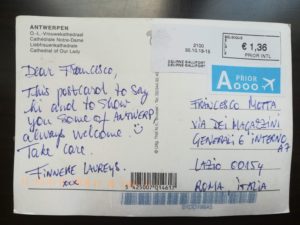 ANTWERPEN
O.-L.-Vrouwekathedraal
Cathédrale Notre-Dame
Liebfrauenkathedrale
Cathedral of Our Lady
Dear Francesco,
This postcard to say
hi and to show
you some of ANTWERP!
always welcome.
Take care.
FINNEKE LAUREYS.
xxx
2100
€ 1,36
PRIOR INTL
A PRIOR
FRANCESCO MOTTA
VIA DEI MAGAZZINI
GENERALI 6 INTERNO
A7
LAZIO 00154
ROMA, ITALIA